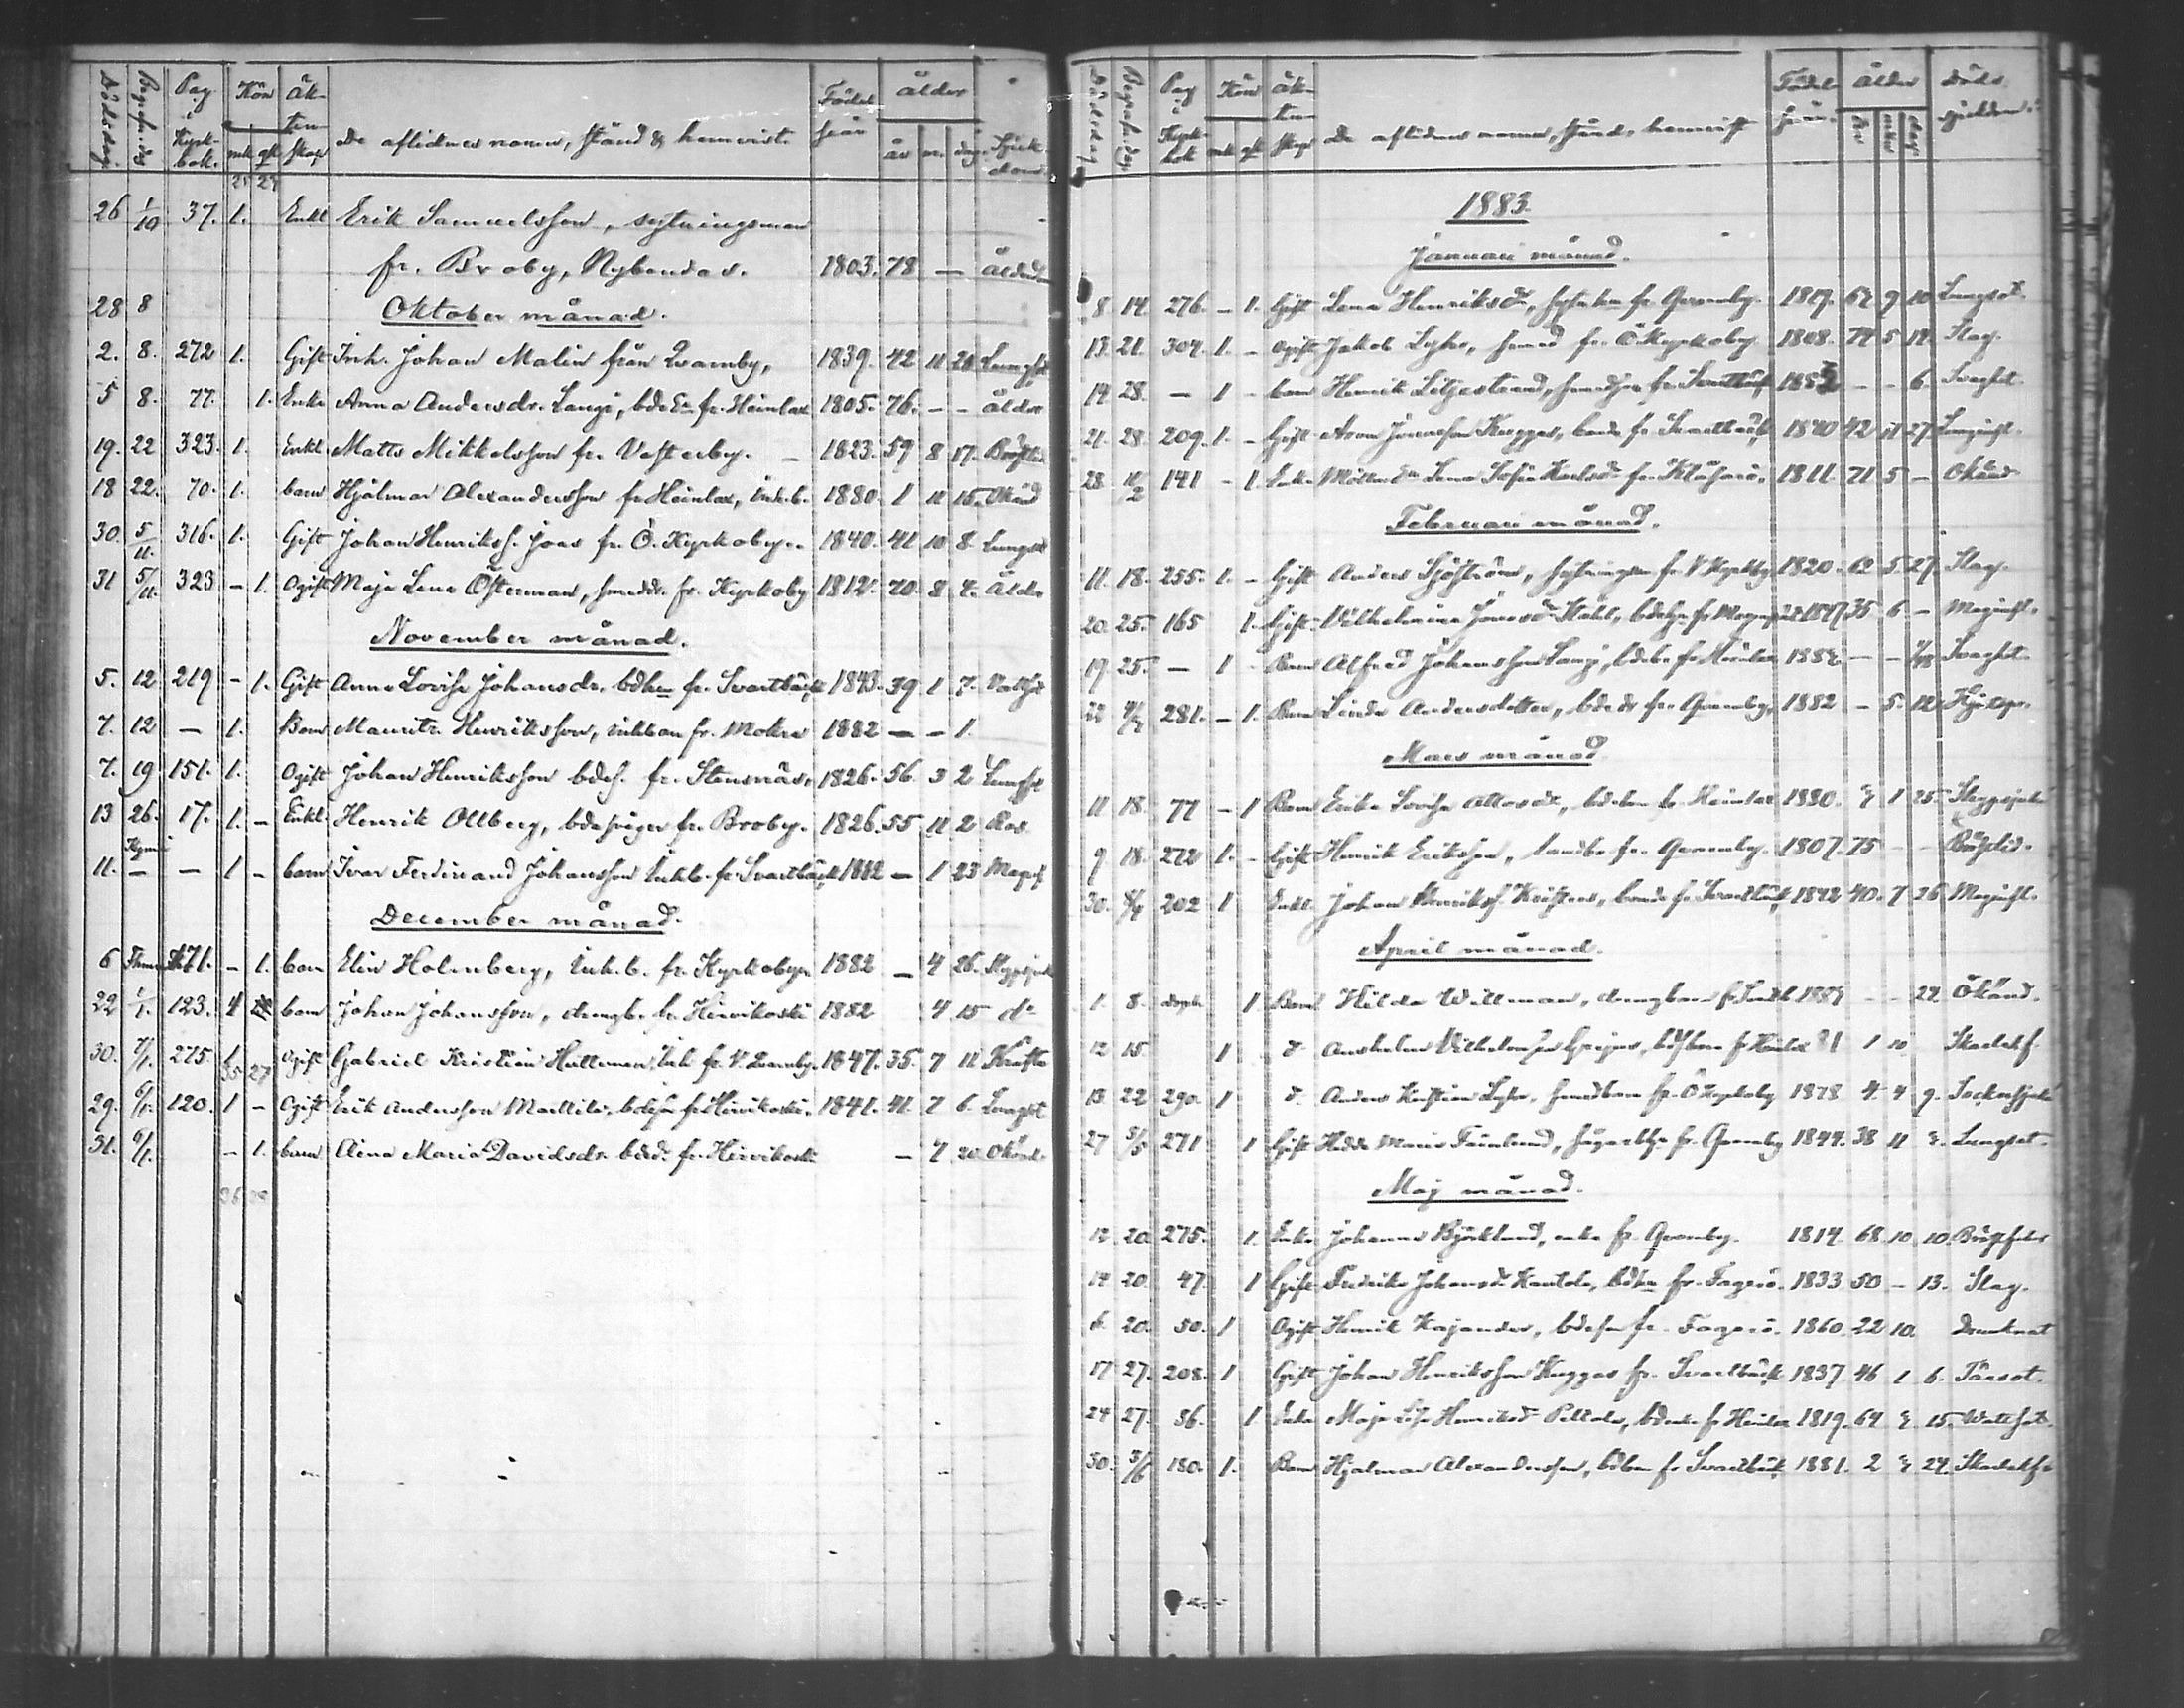 Dödsdag Begrafn.dag Pag i Kyrkbok. Kön mk qk Äktenskap De aflidnes namn, stånd & hemvist. Född för ålder år m. dag. Sjukdom.
25 27
26 1/10 37. 1. Enkl Erik Samuelsson, sytningsman
fr. Broby, Nybondas. 1803. 78 — ålderd
28 8 Oktober månad.
2. 8. 272 1. Gift Inh. Johan Malin från Qvarnby, 1839. 42 11 28 Lungsot
5 8. 77. 1. Enka Anna Andersdr. Lange, bde E. fr. Heinlax 1805. 76. — — ålder
19. 22 323. 1. Enkl Matts Mikkelsson fr. Vesterby. — 1823. 59 8 17. Bröstlid
18 22. 70. 1. barn Hjälmar Alexandersson fr Heinlax, Inh.b. 1880. 1 11 15. Okänd
30. 5/11. 316. 1. Gift Johan Henrikss. Joas fr. Ö. Kyrkoby. 1840. 41 10 8. Lungsot
31 5/11. 323 – 1. Ogift Maja Lena Österman, smeddr. fr. Kyrkoby 1812. 70. 8 4. Ålder
November månad.
5. 12 219 – 1. Gift Anna Lovisa Johansdr. bdhu fr. Svartbäck 1843. 39 1 7. Vattsot
7. 12 — 1. Barn Mauritz Henriksson, fr. Mokra 1882 — – 1.
7. 19 151. 1. Ogift Johan Henriksson bdes. fr. Stensnäs. 1826. 56 3 2 Lungsot
13 26. 17. 1. – Enkl. Henrik Ollberg, fr. Broby. 1826. 55 11 2 Ros
11. — — 1 – barn Ivar Ferdinand Johansson Inhb. fr. Svartbäck 1882 — 1 23 Mags
December månad.
6 171. – 1. barn Elin Holmberg, Inh. b. fr. Kyrkobyn 1882 — 4 26. Strypsjuka
22 1/1. 123. 1 barn Johan Johansson, drengb. fr. Hirvikoski 1882 4 15 d:o
30. 7/1. 275. 1 Ogift Gabriel Kristian Hulleman, Inh fr. V. Qvarnby. 1847. 35. 7 11 Kräfta
25 27
29. 6/1. 120. 1 – Ogift Erik Andersson Marttila, fr. Hirvikoski. 1841. 41. 7 6. Lungsot
31. 6/1. – 1. barn Aina Maria Davidsdr. bded. fr. Hirvikoski — 7 20. Okänd.
Dödsdag Begrafn.dag Pag i Kyrkbok Kön mk qk Äktenskap De aflidnes namn, stånd, hemvist Född för. ålder år mån dag Dödssjukdom.
1883.
Januari månad.
8. 14. 276. – 1. Gift Lena Henriksdr, fr Qvarnby. 1819. 9 10 Lungsot.
13. 21. 304. 1. – Ogift Jakob Lyhr, smed fr. Ö. Kyrkoby 1808. 74 5 14. Slag.
14 28. – 1 – barn Henrik Liljestrand, fr Svartbäck – – 6. Svaghet.
21. 28. 209. 1. – Gift Aron Jonasson Kuggas, bonde fr. Svartbäck 1840 42 11 27. Lunginfl.
28. 11/2 141 – 1. Enka Lena Sofia Karlsdr fr. Klåsarö. 1811. 71 5 – Okänd
Februari månad.
11. 18. 255. 1. – Gift Anders Sjöström, fr. V Kyrkoby 1820. 62 5. 27. Slag.
20. 25. 165 1. Gift Vilhelmina Jonasdr Ståhl, 1847. 35 6 – Maginfl.
19. 25. – 1 – Barn Alfred Johansson Lange, fr. Heinlax 1882 – – Svaghet.
22 4/3 281. – 1. Barn Linda Andersdotter, bdedr fr. Qvarnby, 1882 – 5. 12.
Mars månad.
11 18. 77 – 1 Barn Erika Lovisa Ottosdr, fr. Heinlax 1880. 2 1 25. Strypsjuka
9 18. 272 1. – Gift Henrik Eriksson, landbo fr. Qvarnby. 1807. 75 – – Bröstlid.
30. 8/4 202 1 Enkl Johan Henrikss. Kristers, bonde fr. Svartbäck 1842 40. 7 26 Maginfl.
April månad.
1. 8. 1 Barn Hilda Willman, drengbarn fr. – – 22. Okänd.
12 15. 1 d. Vilhelm barn fr Heinlax 81 1 10 Skarlakf.
13 22 290. 1 d. Anders Kristian Lyhr, smedbarn fr. Ö Kyrkoby 1878 4. 4 9. Sockersjuka
27 3/5 271 1 Gift Hedda Maria fr. Qvarnby 1844. 38 11 2. Lungsot.
Maj månad.
12 20. 275. 1. Enka Johanna Björklund, enka fr. Qvarnby. 1814. 68. 10 10. Bröstfeber
14 20. 47. 1 Gift Fredrika Johansdr. Kantola, bdhu fr. Fagerö. 1833 50 – 13. Slag.
6. 20. 50. 1 Ogift Henrik Kajander, fr. Fagerö. 1860. 22 10. Drunknat
17. 27. 208. 1 Gift Johan Henriksson Kuggas fr. Svartbäck 1837. 46 1 6. Tärsot.
24 27. 56. 1 Enka Maja Henriksdr Pellas, fr Heinlax 1819. 64 2 15. Wattsot.
30. 3/6 180. 1. Barn Hjalmar Alexandersson, fr. Svartbäck 1881. 2 2 24. Skarlakfr